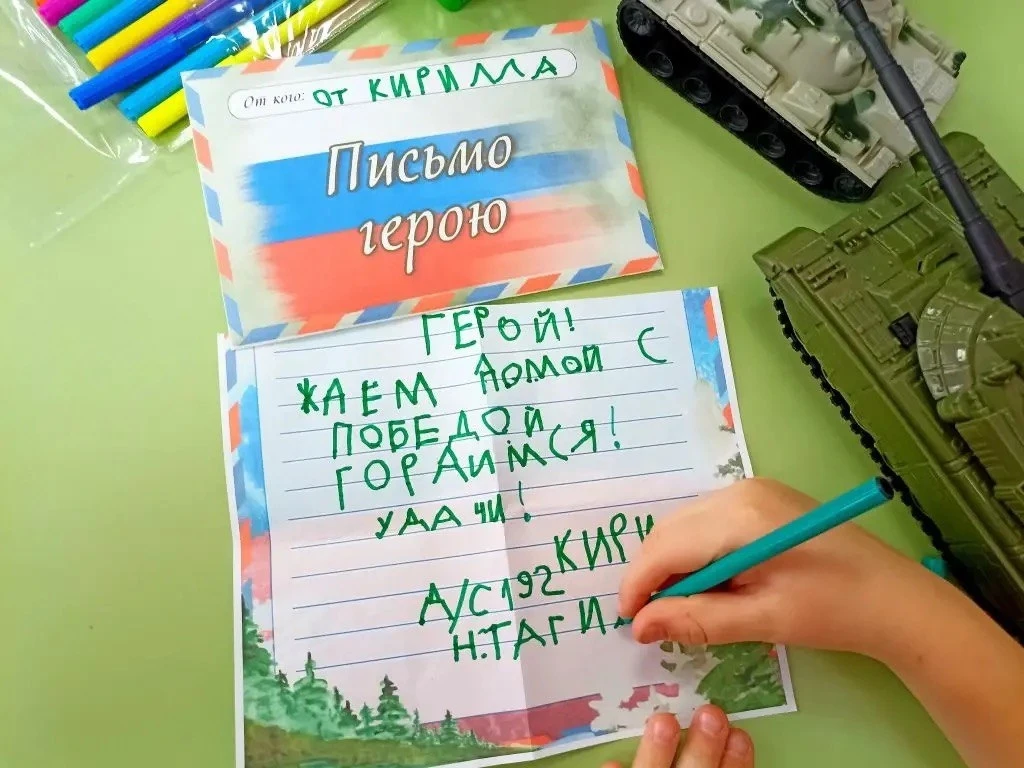 От кого: ОТ КИРИЛЛА
Письмо
герою
ГЕРОЙ!
ЖАЕМ ДОМОЙ С
ПОБЕДОЙ
ГОРДИМСЯ!
УДАЧИ!
КИРИ
Д/С 192
Н.ТАГИЛ